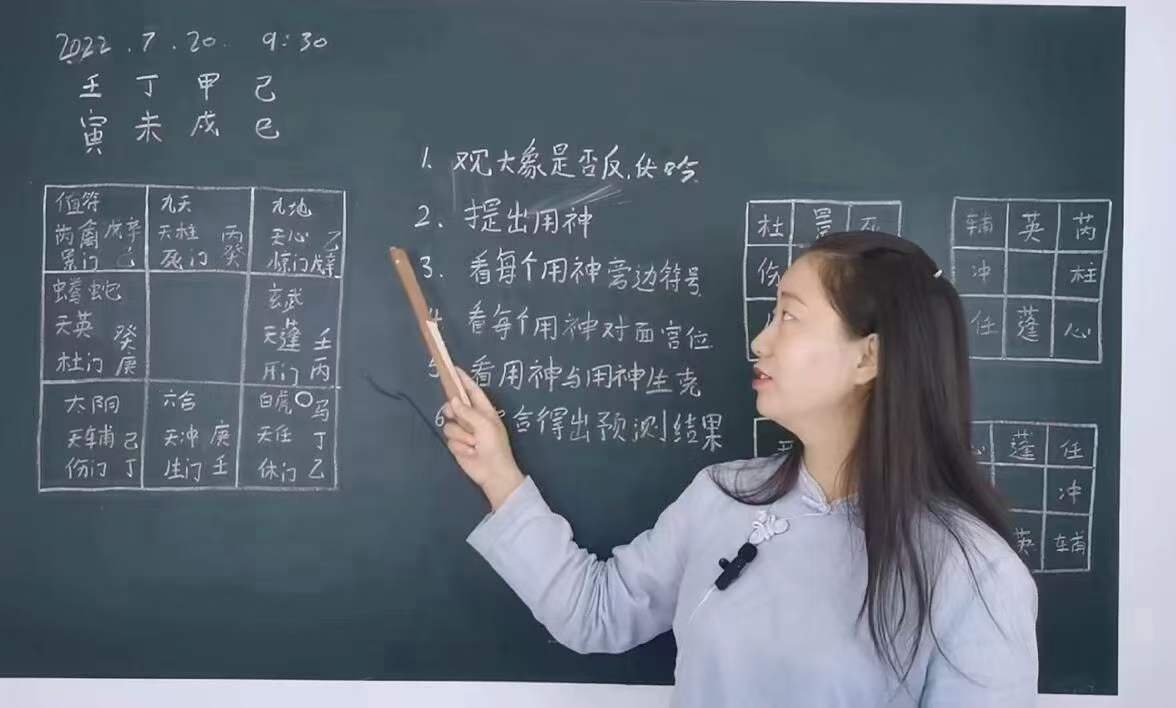 2022.7.20. 9:30
壬 丁 甲 己
寅 未 戌 巳
值符
芮禽 戊辛
景门 己
九天
天柱 丙
死门 癸
九地
天心 乙
惊门 戊辛
螣蛇
天英 癸
杜门 庚
玄武
天蓬 壬
开门 丙
太阴
天辅 己
伤门 丁
六合
天冲 庚
生门 壬
白虎 ○马
天任 丁
休门 乙
1. 观大象是否反.伏吟
2. 提出用神
3. 看每个用神旁边符号
看每个用神对面宫位
5 看用神与用神生克
6 合得出预测结果
杜 景 死
伤
辅 英 芮
冲 柱
任 蓬 心
心 蓬 任
冲
英 辅